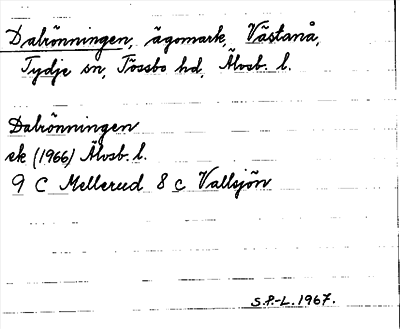 Dalrönningen, ägomark, Västanå,
Tydje sn, Tössbo hd, Älvsb. l.
Dalrönningen
ek (1966) Älvsb. l.
9 C Mellerud 8 c Vallsjön
S.P.-L. 1967.